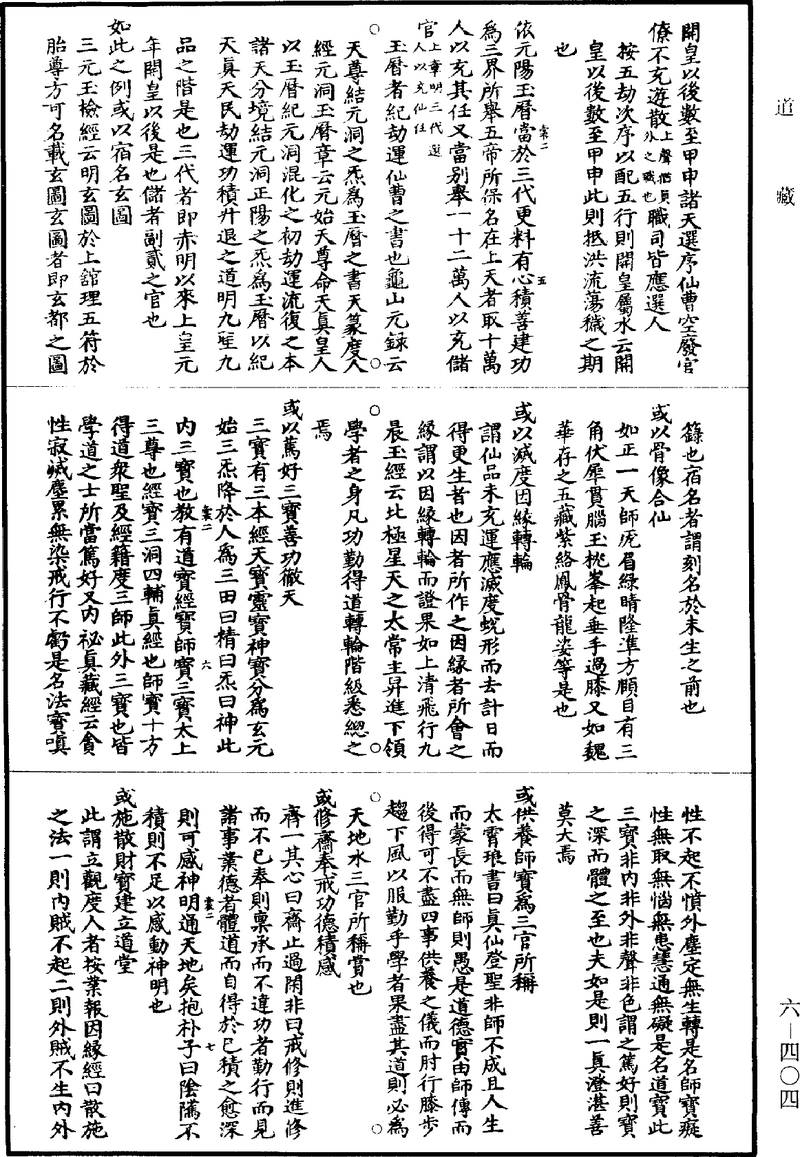 道藏
開皇以後數至甲申諸天選序仙曹空廢官
僚不充遊散上聲猶員外之職也職司皆應選人
按五劫次序以配五行則開皇屬水云開
皇以後數至甲申此則抵洪流蕩穢之期
也
依元陽玉曆當於三代更料有心積善建功
裳二 五
為三界所舉五帝所保名在上天者取十萬
人以充其任又當別舉一十二萬人以充儲
官上章明三代選人以充仙任
玉曆者紀劫運仙曹之書也龜山元録云
天尊結元洞之炁為玉曆之書天篆度人
經元洞玉曆章云元始天尊命天真皇人
以玉曆紀元洞混化之初劫運流復之本
諸天分境結元洞正陽之炁為玉曆以紀
天真天民劫運功積升退之道明九聖九
品之階是也三代者即赤明以來上皇元
年開皇以後是也儲者副貳之官也
如此之例或以宿名玄圖
三元玉檢經云明玄圖於上舘理五符於
胎尊方可名載玄圖玄圖者即玄都之圖
籙也宿名者謂刻名於未生之前也
或以骨像合仙
如正一天師厖眉綠睛隆準方頤目有三
角伏犀貫腦玉枕峯起垂手過膝又如魏
華存之五藏紫絡鳳骨龍姿等是也
或以滅度因緣轉輪
謂仙品未充運應滅度蛻形而去計日而
得更生者也因者所作之因緣者所會之
緣謂以因緣轉輪而證果如上清飛行九
晨玉經云比極星天之太常主昇進下領
學者之身凡功勤得道轉輪階級悉緫之
焉
或以篤好三寶善功徹天
三寶有三本經天寶靈寶神寶分為玄元
始三炁降於人為三田曰精曰炁曰神此
內三寶也教有道寶經寶師寶三寶太上
裳二 六
三尊也經寶三洞四輔真經也師寶十方
得道衆聖及經籍度三師此外三寶也皆
學道之士所當篤好又內祕真藏經云貪
性寂滅塵累無染戒行不虧是名法寶嗔
性不起不憤外塵定無生轉是名師寶癡
性無取無惱無恚慧通無礙是名道寶此
三寶非內非外非聲非色謂之篤好則寶
之深而體之至也夫如是則一真澄湛善
莫大焉
或供養師寶為三官所稱
太霄琅書曰真仙登聖非師不成且人生
而蒙長而無師則愚是道德實由師傳而
後得可不盡四事供養之儀而肘行膝步
趨下風以服勤乎學者果盡其道則必為
天地水三官所稱賞也
或修齋奉戒功德積感
齊一其心曰齋止過閑非曰戒修則進修
而不已奉則稟承而不違功者勤行而見
諸事業德者體道而自得於己積之愈深
則可感神明通天地矣抱朴子曰陰隲不
裳二 七
積則不足以感動神明也
或施散財寶建立道堂
此謂立觀度人者按業報因緣經曰散施
之法一則內賊不起二則外賊不生內外
六－四〇四